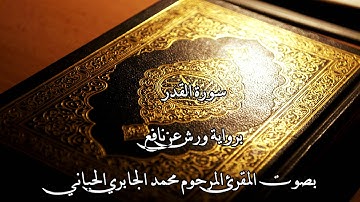 سورة القدر
برواية ورش عن نافع
بصوت المقرئ المرحوم محمد الجابري الحياني